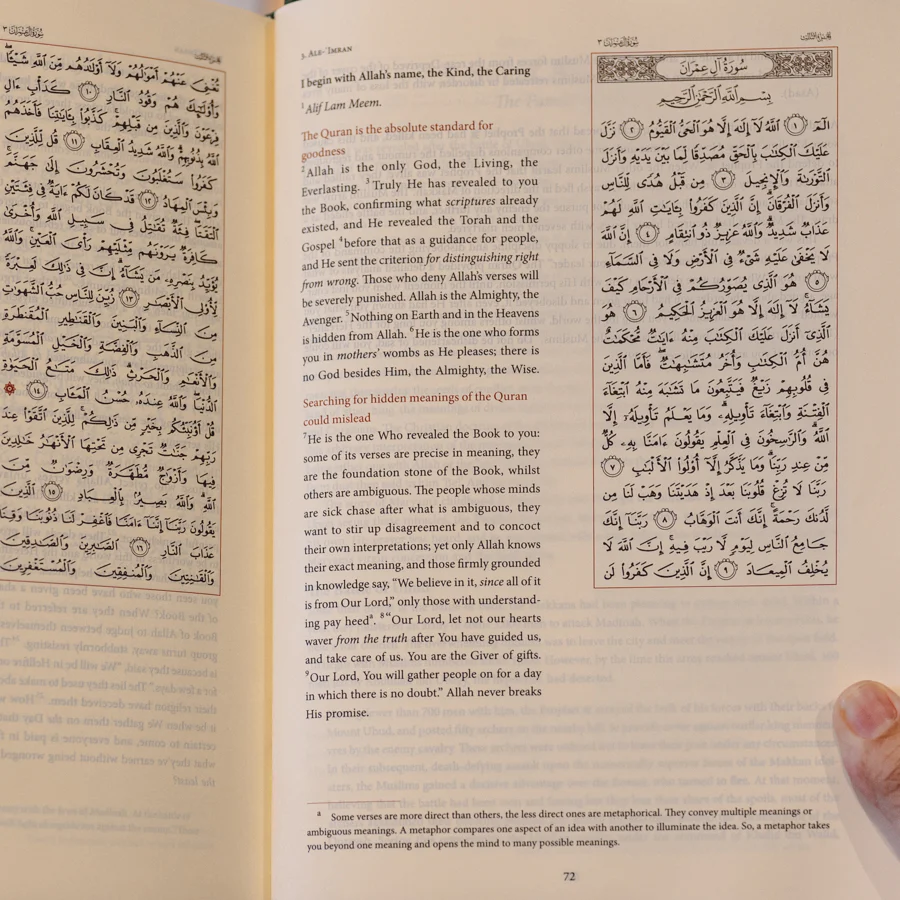 سُورَةُ آلِ عِمْرَانَ ٣
تُغْنِىَ عَنْهُمْ أَمْوَٰلُهُمْ وَلَآ أَوْلَٰدُهُم مِّنَ ٱللَّهِ شَيْـًٔا ۖ
وَأُو۟لَٰٓئِكَ هُمْ وَقُودُ ٱلنَّارِ ١٠ كَدَأْبِ ءَالِ
فِرْعَوْنَ وَٱلَّذِينَ مِن قَبْلِهِمْ ۚ كَذَّبُوا۟ بِـَٔايَٰتِنَا فَأَخَذَهُمُ
ٱللَّهُ بِذُنُوبِهِمْ ۗ وَٱللَّهُ شَدِيدُ ٱلْعِقَابِ ١١ قُل لِّلَّذِينَ
كَفَرُوا۟ سَتُغْلَبُونَ وَتُحْشَرُونَ إِلَىٰ جَهَنَّمَ ۚ
وَبِئْسَ ٱلْمِهَادُ ١٢ قَدْ كَانَ لَكُمْ ءَايَةٌ فِى فِئَتَيْنِ
ٱلْتَقَتَا ۖ فِئَةٌ تُقَٰتِلُ فِى سَبِيلِ ٱللَّهِ وَأُخْرَىٰ
كَافِرَةٌ يَرَوْنَهُم مِّثْلَيْهِمْ رَأْىَ ٱلْعَيْنِ ۚ وَٱللَّهُ
يُؤَيِّدُ بِنَصْرِهِۦ مَن يَشَآءُ ۗ إِنَّ فِى ذَٰلِكَ لَعِبْرَةً
لِّأُو۟لِى ٱلْأَبْصَٰرِ ١٣ زُيِّنَ لِلنَّاسِ حُبُّ ٱلشَّهَوَٰتِ
مِنَ ٱلنِّسَآءِ وَٱلْبَنِينَ وَٱلْقَنَٰطِيرِ ٱلْمُقَنطَرَةِ
مِنَ ٱلذَّهَبِ وَٱلْفِضَّةِ وَٱلْخَيْلِ ٱلْمُسَوَّمَةِ
وَٱلْأَنْعَٰمِ وَٱلْحَرْثِ ۗ ذَٰلِكَ مَتَٰعُ ٱلْحَيَوٰةِ
ٱلدُّنْيَا ۖ وَٱللَّهُ عِندَهُۥ حُسْنُ ٱلْمَـَٔابِ ١٤
قُلْ أَؤُنَبِّئُكُم بِخَيْرٍ مِّن ذَٰلِكُمْ ۚ لِلَّذِينَ ٱتَّقَوْا۟ عِندَ
رَبِّهِمْ جَنَّٰتٌ تَجْرِى مِن تَحْتِهَا ٱلْأَنْهَٰرُ خَٰلِدِينَ
فِيهَا وَأَزْوَٰجٌ مُّطَهَّرَةٌ وَرِضْوَٰنٌ مِّنَ
ٱللَّهِ ۗ وَٱللَّهُ بَصِيرٌۢ بِٱلْعِبَادِ ١٥ ٱلَّذِينَ
يَقُولُونَ رَبَّنَآ إِنَّنَآ ءَامَنَّا فَٱغْفِرْ لَنَا ذُنُوبَنَا وَقِنَا
عَذَابَ ٱلنَّارِ ١٦ ٱلصَّٰبِرِينَ وَٱلصَّٰدِقِينَ
وَٱلْقَٰنِتِينَ وَٱلْمُنفِقِينَ وَٱلْمُسْتَغْفِرِينَ
3. Ale-ʿImran
I begin with Allah’s name, the Kind, the Caring
1 Alif Lam Meem.
The Quran is the absolute standard for
goodness
2Allah is the only God, the Living, the
Everlasting. 3Truly He has revealed to you
the Book, confirming what scriptures already
existed, and He revealed the Torah and the
Gospel 4before that as a guidance for people,
and He sent the criterion for distinguishing right
from wrong. Those who deny Allah’s verses will
be severely punished. Allah is the Almighty, the
Avenger. 5Nothing on Earth and in the Heavens
is hidden from Allah. 6He is the one who forms
you in mothers’ wombs as He pleases; there is
no God besides Him, the Almighty, the Wise.
Searching for hidden meanings of the Quran
could mislead
7He is the one Who revealed the Book to you:
some of its verses are precise in meaning, they
are the foundation stone of the Book, whilst
others are ambiguous. The people whose minds
are sick chase after what is ambiguous, they
want to stir up disagreement and to concoct
their own interpretations; yet only Allah knows
their exact meaning, and those firmly grounded
in knowledge say, “We believe in it, since all of it
is from Our Lord,” only those with understand-
ing pay heeda. 8“Our Lord, let not our hearts
waver from the truth after You have guided us,
and take care of us. You are the Giver of gifts.
9Our Lord, You will gather people on for a day
in which there is no doubt.” Allah never breaks
His promise.
سُورَةُ آلِ عِمْرَانَ ٣
الجزء الثالث
سُورَةُ آلِ عِمْرَانَ
بِسْمِ ٱللَّهِ ٱلرَّحْمَٰنِ ٱلرَّحِيمِ
الٓمٓ ١ ٱللَّهُ لَآ إِلَٰهَ إِلَّا هُوَ ٱلْحَىُّ ٱلْقَيُّومُ ٢ نَزَّلَ
عَلَيْكَ ٱلْكِتَٰبَ بِٱلْحَقِّ مُصَدِّقًا لِّمَا بَيْنَ يَدَيْهِ وَأَنزَلَ
ٱلتَّوْرَىٰةَ وَٱلْإِنجِيلَ ٣ مِن قَبْلُ هُدًى لِّلنَّاسِ
وَأَنزَلَ ٱلْفُرْقَانَ ۗ إِنَّ ٱلَّذِينَ كَفَرُوا۟ بِـَٔايَٰتِ ٱللَّهِ لَهُمْ
عَذَابٌ شَدِيدٌ ۗ وَٱللَّهُ عَزِيزٌ ذُو ٱنتِقَامٍ ٤ إِنَّ ٱللَّهَ
لَا يَخْفَىٰ عَلَيْهِ شَىْءٌ فِى ٱلْأَرْضِ وَلَا فِى ٱلسَّمَآءِ
٥ هُوَ ٱلَّذِى يُصَوِّرُكُمْ فِى ٱلْأَرْحَامِ كَيْفَ
يَشَآءُ ۚ لَآ إِلَٰهَ إِلَّا هُوَ ٱلْعَزِيزُ ٱلْحَكِيمُ ٦ هُوَ
ٱلَّذِىٓ أَنزَلَ عَلَيْكَ ٱلْكِتَٰبَ مِنْهُ ءَايَٰتٌ مُّحْكَمَٰتٌ
هُنَّ أُمُّ ٱلْكِتَٰبِ وَأُخَرُ مُتَشَٰبِهَٰتٌ ۖ فَأَمَّا ٱلَّذِينَ
فِى قُلُوبِهِمْ زَيْغٌ فَيَتَّبِعُونَ مَا تَشَٰبَهَ مِنْهُ ٱبْتِغَآءَ
ٱلْفِتْنَةِ وَٱبْتِغَآءَ تَأْوِيلِهِۦ ۗ وَمَا يَعْلَمُ تَأْوِيلَهُۥٓ إِلَّا
ٱللَّهُ ۗ وَٱلرَّٰسِخُونَ فِى ٱلْعِلْمِ يَقُولُونَ ءَامَنَّا بِهِۦ كُلٌّ
مِّنْ عِندِ رَبِّنَا ۗ وَمَا يَذَّكَّرُ إِلَّآ أُو۟لُوا۟ ٱلْأَلْبَٰبِ ٧
رَبَّنَا لَا تُزِغْ قُلُوبَنَا بَعْدَ إِذْ هَدَيْتَنَا وَهَبْ لَنَا مِن
لَّدُنكَ رَحْمَةً ۚ إِنَّكَ أَنتَ ٱلْوَهَّابُ ٨ رَبَّنَآ إِنَّكَ
جَامِعُ ٱلنَّاسِ لِيَوْمٍ لَّا رَيْبَ فِيهِ ۚ إِنَّ ٱللَّهَ لَا
يُخْلِفُ ٱلْمِيعَادَ ٩ إِنَّ ٱلَّذِينَ كَفَرُوا۟ لَن
a Some verses are more direct than others, the less direct ones are metaphorical. They convey multiple meanings or
ambiguous meanings. A metaphor compares one aspect of an idea with another to illuminate the idea. So, a metaphor takes
you beyond one meaning and opens the mind to many possible meanings.
72